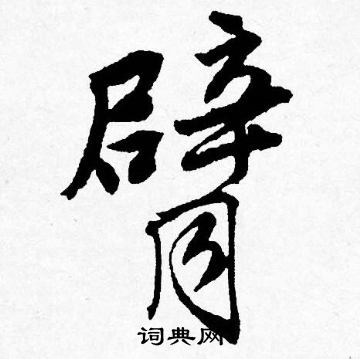 臂
词典网